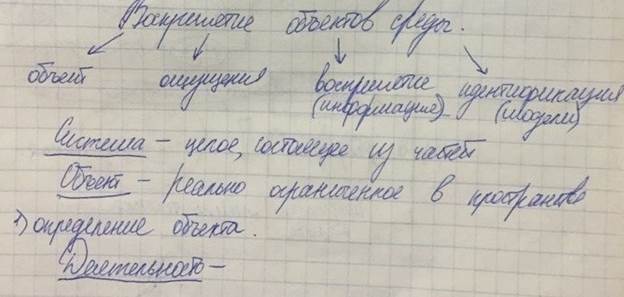 Восприятие объектов среды.
объект ощущения восприятие идентификация
(информация) (модели)
Система – целое, состоящее из частей
Объект – реально ограниченное в пространстве
1) определение объекта.
Деятельность –